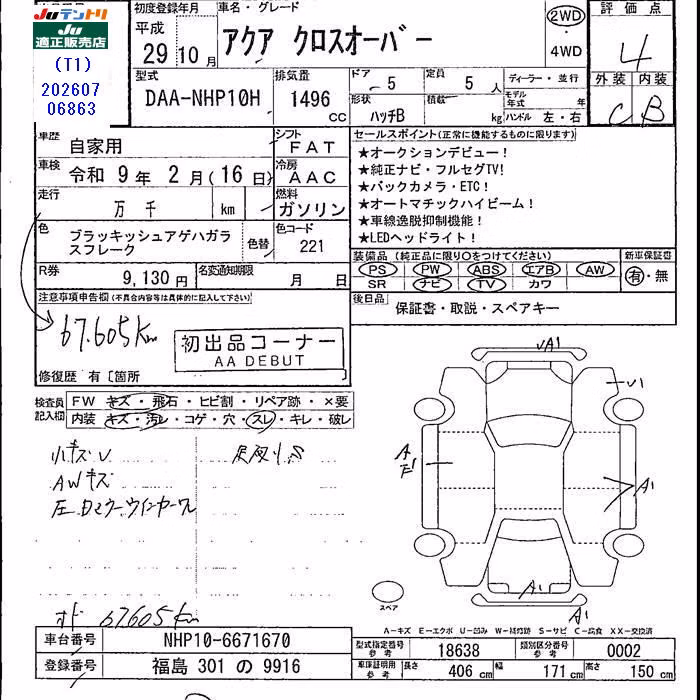 Juテントリ
Ju
適正販売店
(T1)
202607
06863
初度登録年月
平成
29年10月
車名・グレード
アクア クロスオーバー
2WD
4WD
評価点
4
外装 内装
C B
型式
DAA-NHP10H
排気量
1496
CC
ドア 5
定員 5 人
形状
ハッチB
積載
kg
ディーラー・並行
モデル年式 年
ハンドル 左・右
車歴
自家用
シフト
FAT
車検
令和 9年 2月(16日)
冷房
AAC
走行
万 千
km
燃料
ガソリン
色
ブラッキッシュアゲハガラスフレーク
色替
色コード
221
R券
9,130円
名変通知期限
月 日
セールスポイント(正常に機能するものに限ります)
★オークションデビュー!
★純正ナビ・フルセグTV!
★バックカメラ・ETC!
★オートマチックハイビーム!
★車線逸脱抑制機能!
★LEDヘッドライト!
装備品 (純正品に限り○をつけてください)
PS PW ABS エアB AW
SR ナビ TV カワ
新車保証書
有・無
後日品
保証書・取説・スペアキー
注意事項申告欄(不具合内容等は具体的に記入して下さい)
67.605Km
初出品コーナー
AA DEBUT
修復歴 有〔箇所
検査員記入欄
FW キズ・飛石・ヒビ割・リペア跡・×要
内装 キズ・汚レ・コゲ・穴・スレ・キレ・破レ
小キズU
AWキズ
左Dミラーウインカーワレ
オド 67605Km
VA1
U1
A
E1
A1
A1
A1
スペア
A-キズ E-エクボ U-凹み W-補修跡 S-サビ C-腐食 XX-交換済
車台番号
NHP10-6671670
登録番号
福島 301 の 9916
型式指定番号
参考
18638
類別区分番号
参考
0002
車庫証明用
参考
長さ 406 cm 幅 171 cm 高さ 150 cm